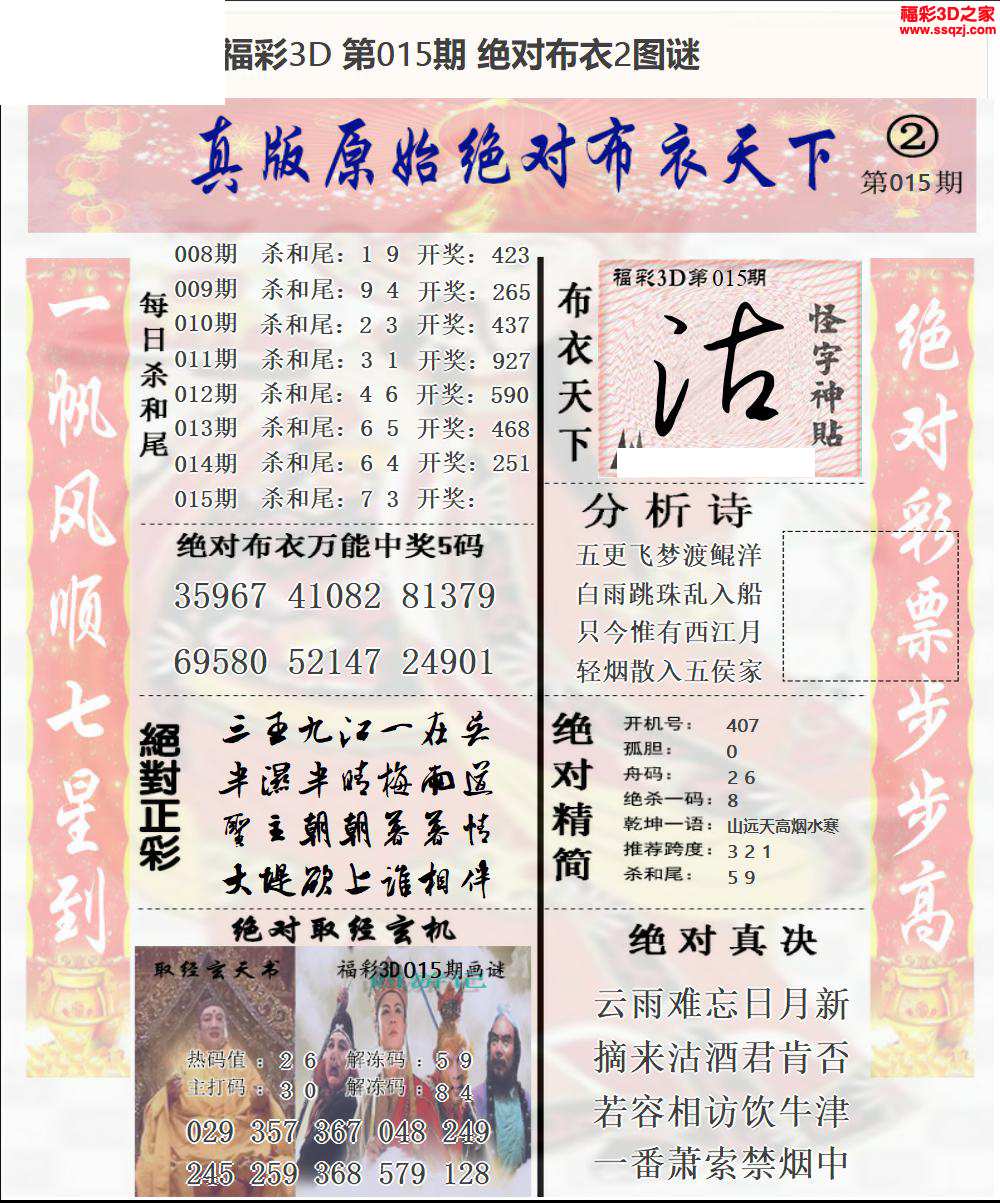 福彩3D之家
www.ssqzj.com
福彩3D 第015期 绝对布衣2图谜
真版原始绝对布衣天下
②
第015期
一帆风顺七星到
每日杀和尾
008期 杀和尾：1 9 开奖：423
009期 杀和尾：9 4 开奖：265
010期 杀和尾：2 3 开奖：437
011期 杀和尾：3 1 开奖：927
012期 杀和尾：4 6 开奖：590
013期 杀和尾：6 5 开奖：468
014期 杀和尾：6 4 开奖：251
015期 杀和尾：7 3 开奖：
绝对布衣万能中奖5码
35967 41082 81379
69580 52147 24901
絕對正彩
三至九江一在吴
半濕半晴梅雨道
聖主朝朝暮暮情
大堤欲上谁相伴
绝对取经玄机
取经玄天书
福彩3D015期画谜
热码值：2 6 解冻码：5 9
主打码：3 0 解冻码：8 4
029 357 367 048 249
245 259 368 579 128
布衣天下
福彩3D第015期
沽
怪字神貼
分析诗
五更飞梦渡鲲洋
白雨跳珠乱入船
只今惟有西江月
轻烟散入五侯家
绝对精简
开机号：407
孤胆：0
舟码：2 6
绝杀一码：8
乾坤一语：山远天高烟水寒
推荐跨度：3 2 1
杀和尾：5 9
绝对真决
云雨难忘日月新
摘来沽酒君肯否
若容相访饮牛津
一番萧索禁烟中
绝对彩票步步高